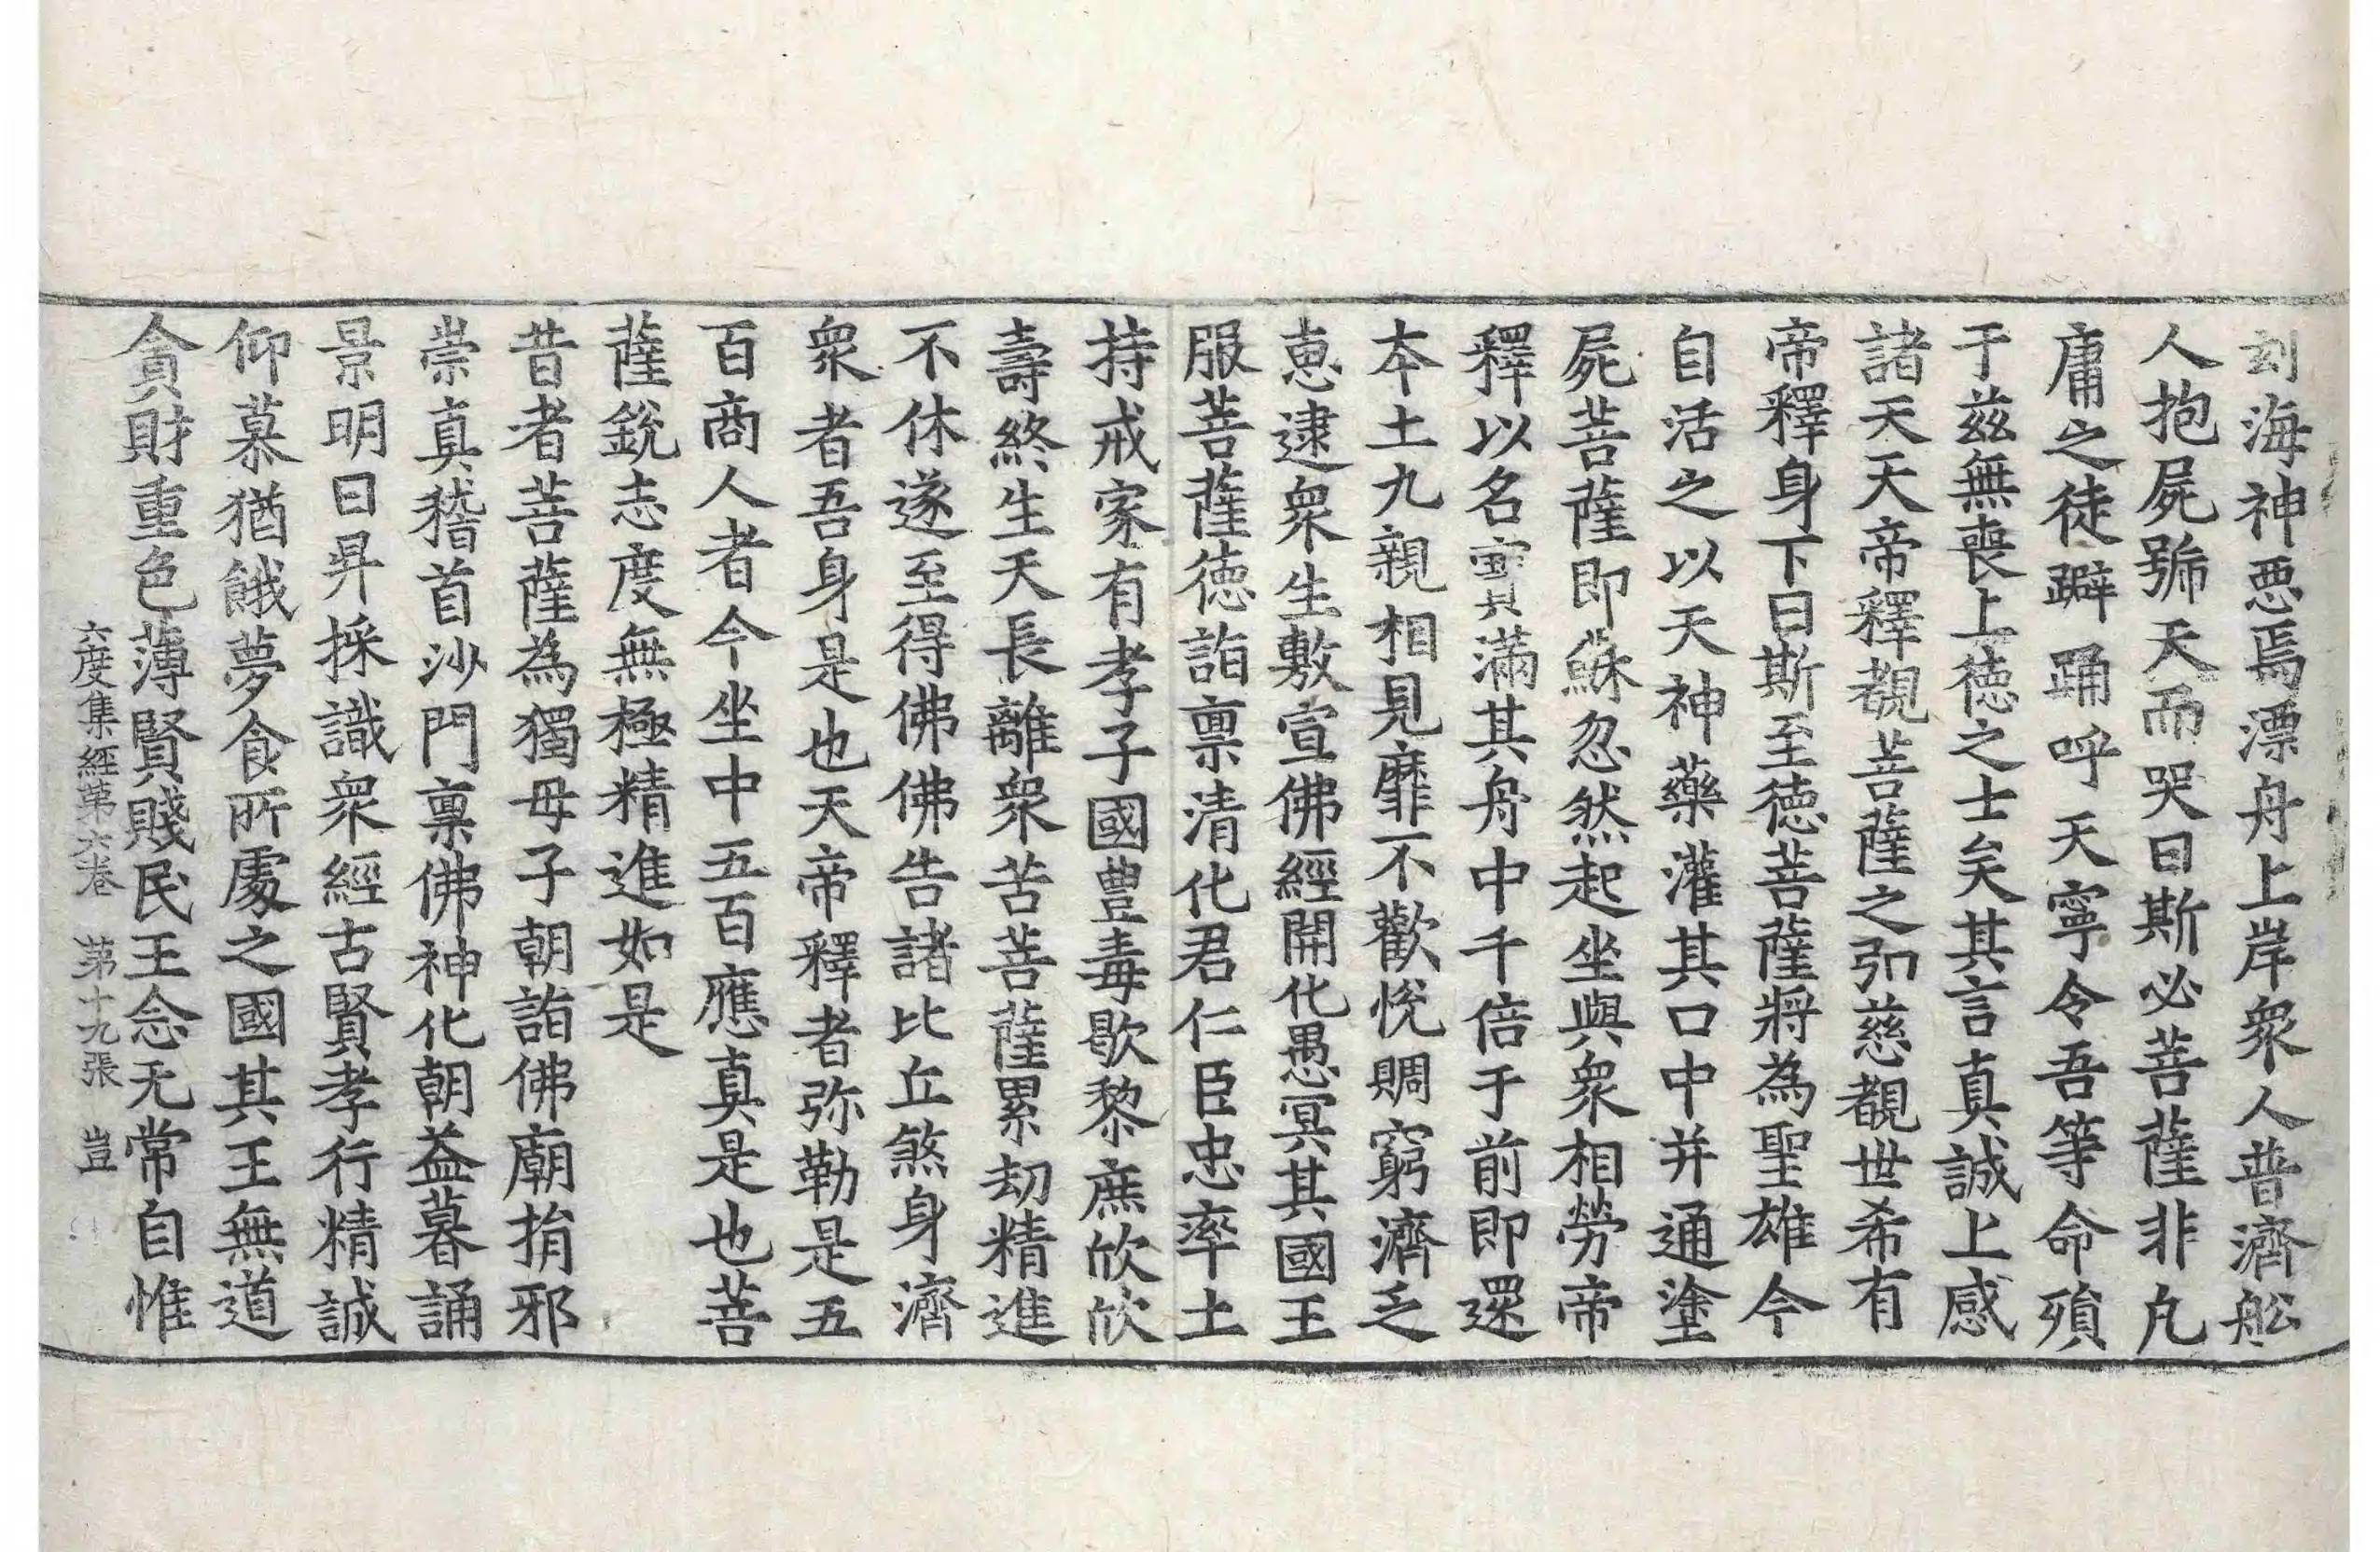 刻海神惡焉漂舟上岸衆人普濟舩
人抱屍號天而哭曰斯必菩薩非凡
庸之徒躃踊呼天寧令吾等命殞
于茲無喪上德之士矣其言真誠上感
諸天天帝釋覩菩薩之弘慈覩世希有
帝釋身下曰斯至德菩薩將為聖雄今
自活之以天神藥灌其口中并通塗
屍菩薩即蘇忽然起坐與衆相勞帝
釋以名寶滿其舟中千倍于前即還
本土九親相見靡不歡悅賙窮濟乏
恵逮衆生敷宣佛經開化愚冥其國王
服菩薩德詣禀清化君仁臣忠率土
持戒家有孝子國豊毒歇黎庶欣欣
壽終生天長離衆苦菩薩累劫精進
不休遂至得佛佛告諸比丘煞身濟
衆者吾身是也天帝釋者弥勒是五
百商人者今坐中五百應真是也菩
薩銳志度無極精進如是
昔者菩薩為獨母子朝詣佛廟捐邪
崇真稽首沙門禀佛神化朝益暮誦
景明日昇採識衆經古賢孝行精誠
仰慕猶餓夢食所處之國其王無道
貪財重色薄賢賤民王念无常自惟
六度集經第六卷 第十九張 豈